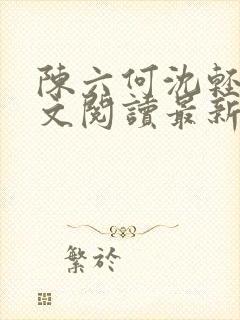 陳六何沈輕
文閱讀最新
繁於